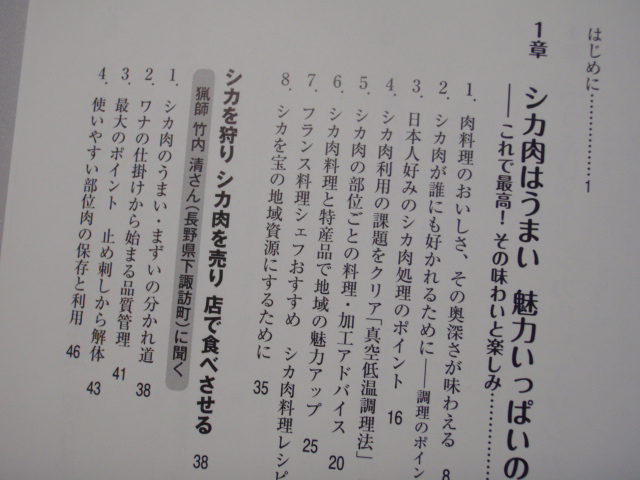 はじめに……………1
1章 シカ肉はうまい 魅力いっぱいの
――これで最高！その味わいと楽しみ……………
1. 肉料理のおいしさ、その奥深さが味わえる 8
2. シカ肉が誰にも好かれるために――調理のポイン
3. 日本人好みのシカ肉処理のポイント 16
4. シカ肉利用の課題をクリア「真空低温調理法」
5. シカ肉の部位ごとの料理・加工アドバイス 20
6. シカ肉料理と特産品で地域の魅力アップ 25
7. フランス料理シェフおすすめ シカ肉料理レシピ
8. シカを宝の地域資源にするために 35
シカを狩り シカ肉を売り 店で食べさせる 38
猟師 竹内 清さん（長野県下諏訪町）に聞く
1. シカ肉のうまい・まずいの分かれ道 38
2. ワナの仕掛けから始まる品質管理 41
3. 最大のポイント 止め刺しから解体 43
4. 使いやすい部位肉の保存と利用 46